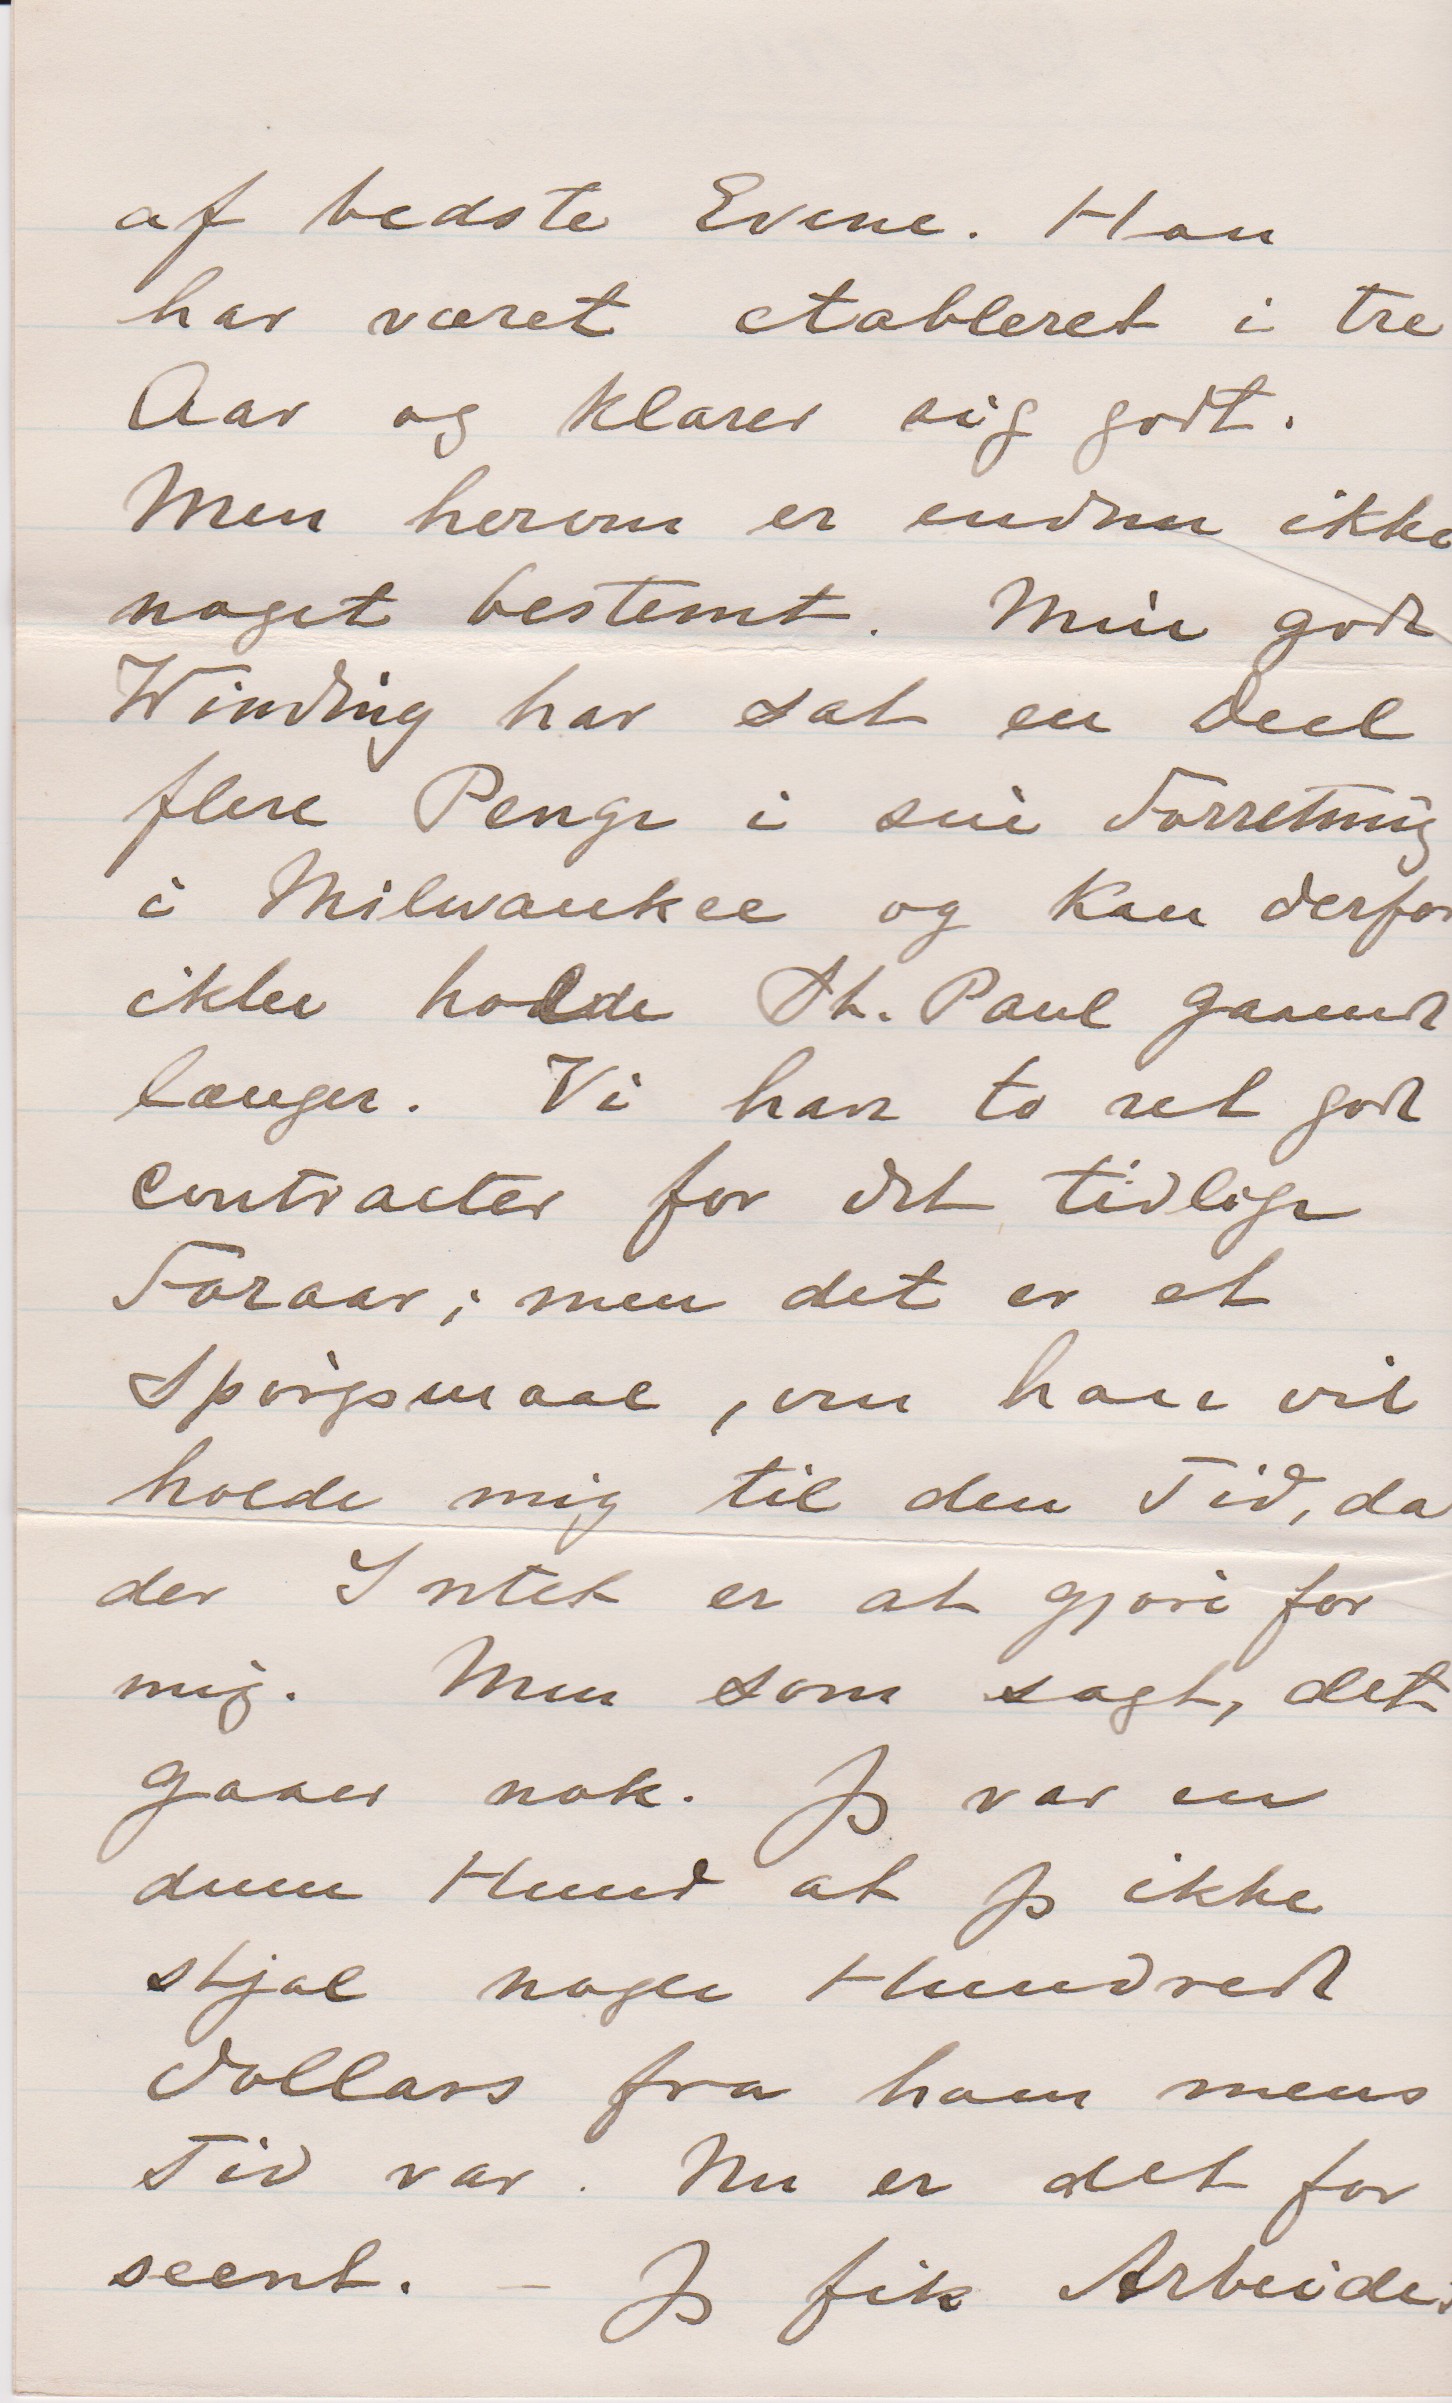 af bedste Evne. Han
har været etableret i tre
Aar og klarer sig godt.
Men herom er endnu ikke
noget bestemt. Min gode
Winding har sat en Deel
flere Penge i sin Forretning
i Milwaukee og kan derfor
ikke holde St. Paul gaaende
længer. Vi har to ret gode
Contracter for det tidlige
Foraar; men det er et
Spørgsmaal, om han vil
holde mig til den Tid, da
der Intet er at gjøre for
mig. Men som sagt, det
gaaer nok. Jeg var en
dum Hund at jeg ikke
stjal nogle Hundrede
Dollars fra ham mens
Tid var. Nu er det for
seent. – Jeg fik Arbeide